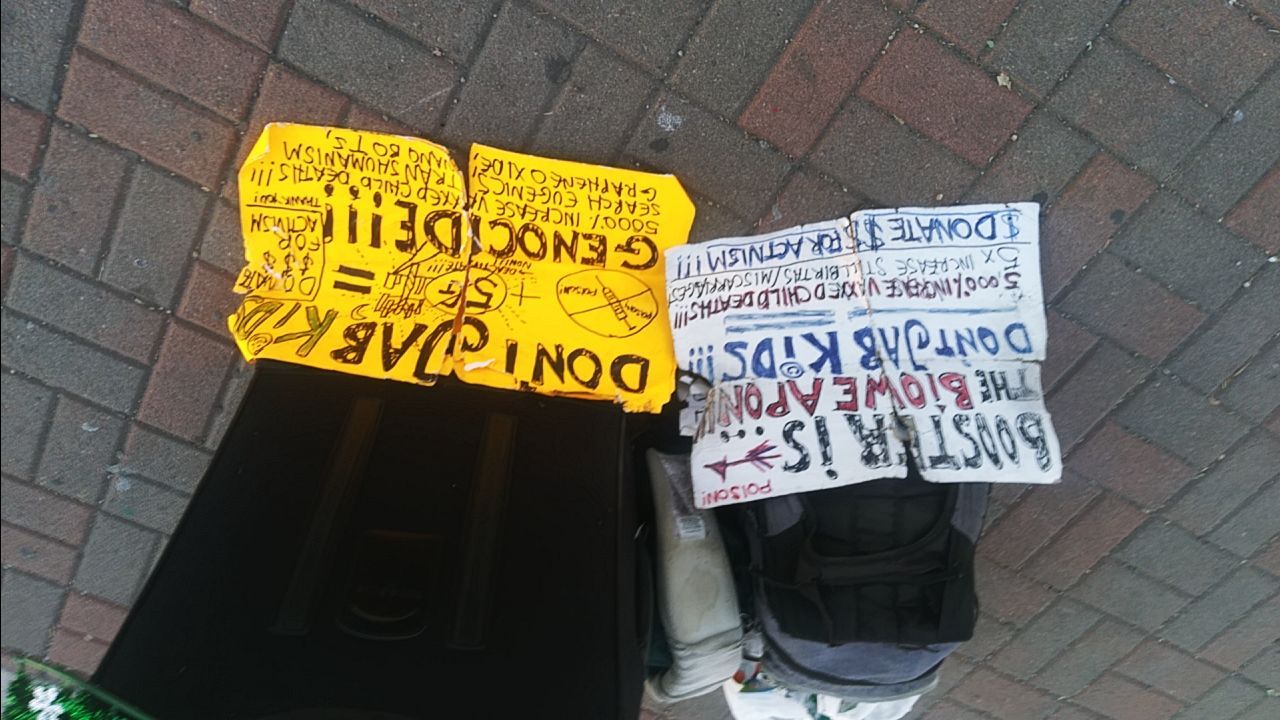 BOOSTER iS...
POISON!
THE BIOWEAPON!
DONT JAB KiDS!!!
5000% INCREASE VAXXED CHILD DEATHS!!!
5X INCREASE STILLBIRTHS/MISCARRIAGES!
$DONATE $$ FOR ACTIVISM!!!
DONT JAB KiDS
POISON + 5G =
GENOCIDE!!!!
DONATE
$$$$
FOR
ACTIVISM
THANK YOU!
5000% INCREASE VAXXED CHILD DEATHS!!!
SEARCH EUGENICS, TRANSHUMANISM
GRAPHENE OXIDE, NANO BOTS,